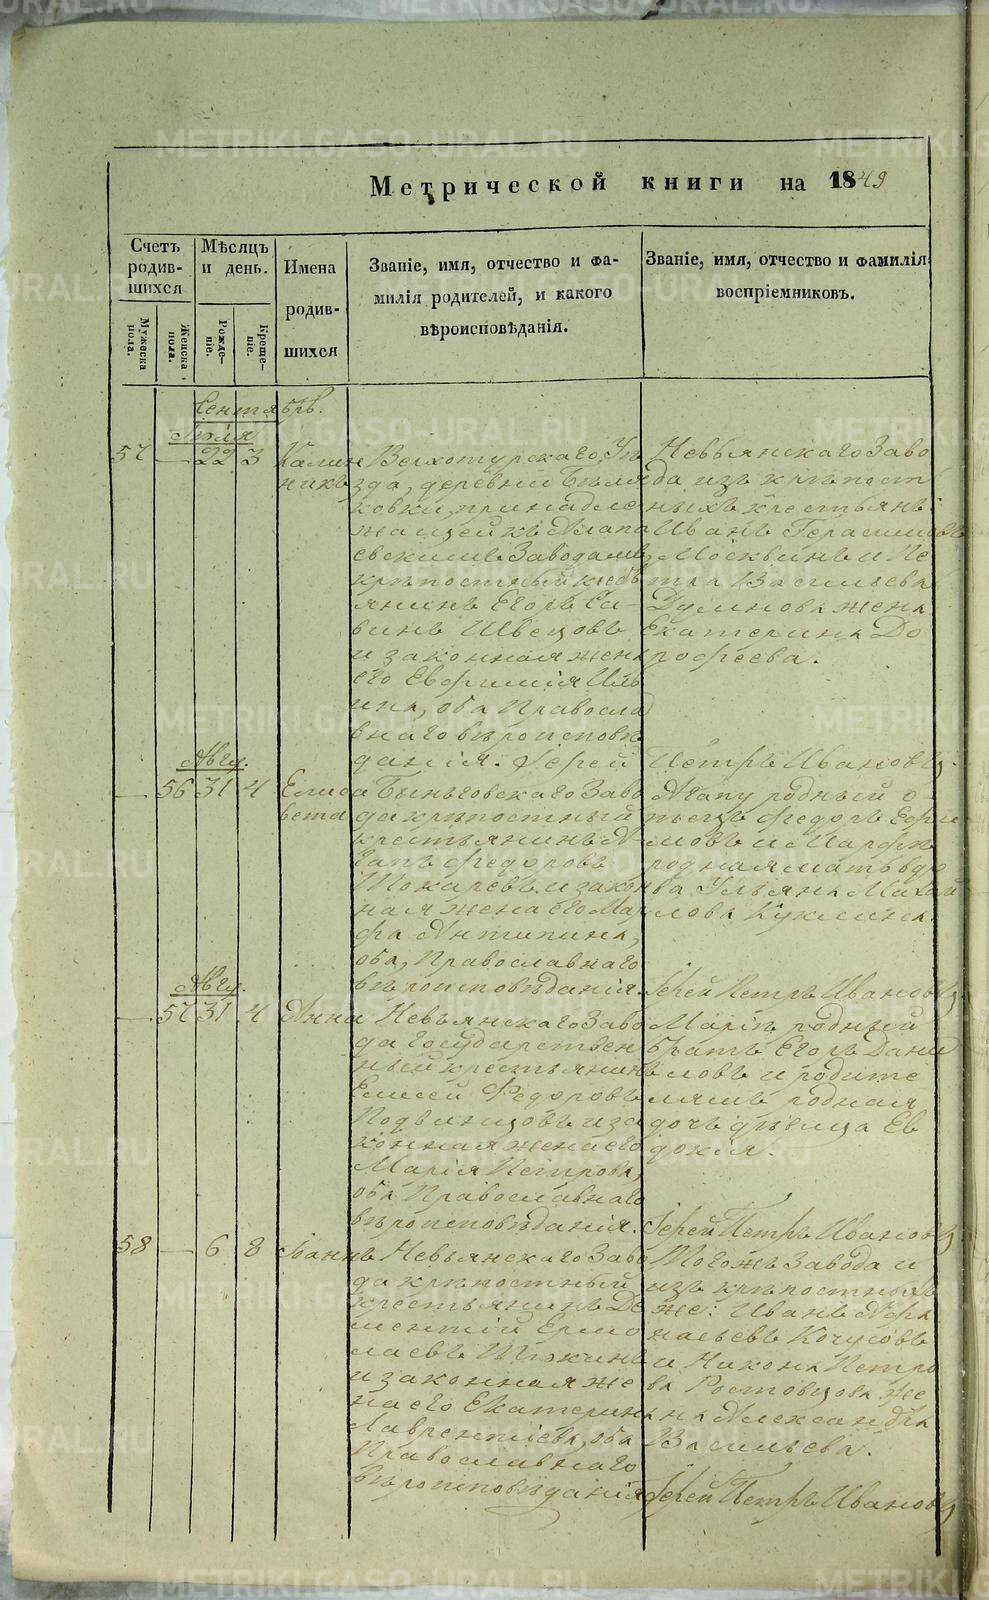 METRIKI.GASO-URAL.RU
Метрической книги на 1849
Счетъ родив-шихся
Мѣсяцъ и день.
Имена родив-шихся
Званіе, имя, отчество и фа-
милія родителей, и какого
вѣроисповѣданія.
Званіе, имя, отчество и фамилія
воспріемниковъ.
Мужеска пола.
Женска пола.
Рожде-ніе.
Креще-ніе.
Сентябрь.
Іюля
57 — 22 3
Калин
никъ
Верхотурскаго Уѣ
зда, деревни Бѣля
ковки, принадле
жащей къ Алапа
евскимъ Заводамъ,
крѣпостный кресть
янинъ Егоръ Са-
винъ Швецовъ
и законная жена
его Евфимія Иль
ина, оба Правосла
внаго вѣроисповѣ
данія. Іерей
Невьянскаго Заво
да изъ крѣпост
ныхъ крестьянъ
Иванъ Герасимовъ
Москвинъ и Пе
тра Васильева
жена
Екатерина До
рофеева.
Петръ Ивановъ.
Авгу.
— 56 31 4
Елиса
вета
Быньговскаго Заво
да крѣпостный
крестьянинъ А-
гапъ Федоровъ
Токаревъ и закон
ная жена его Мар
фа Антипина,
оба, Православнаго
вѣроисповѣданія.
Агапу родный о-
тецъ Федоръ Ефи
мовъ и Марфѣ
родная мать вдо
ва Ульяна Михай
лова Куклина.
Іерей Петръ Ивановъ.
Авгу.
— 57 31 4
Анна
Невьянскаго Заво
да государствен
ный крестьянинъ
Елисей Федоровъ
Подвинцовъ и за
конная жена его
Марія Петрова,
оба Православнаго
вѣроисповѣданія.
Маріи родный
братъ Егоръ Дани
ловъ и родите
лямъ родная
дочь дѣвица Ев
докія.
Іерей Петръ Ивановъ
58 — 6 8
Іоаннъ
Невьянскаго Заво
да крѣпостный
крестьянинъ Де
ментій Ермо
лаевъ
и законная же
на его Екатерина
Лаврентіева, оба
Православнаго
вѣроисповѣданія
Тогожъ Завода и
изъ крѣпостныхъ
же: Иванъ Афа
насьевъ
и Никона Петро
ва Ростовцова же
на Александра
Васильева.
Іерей Петръ Ивановъ